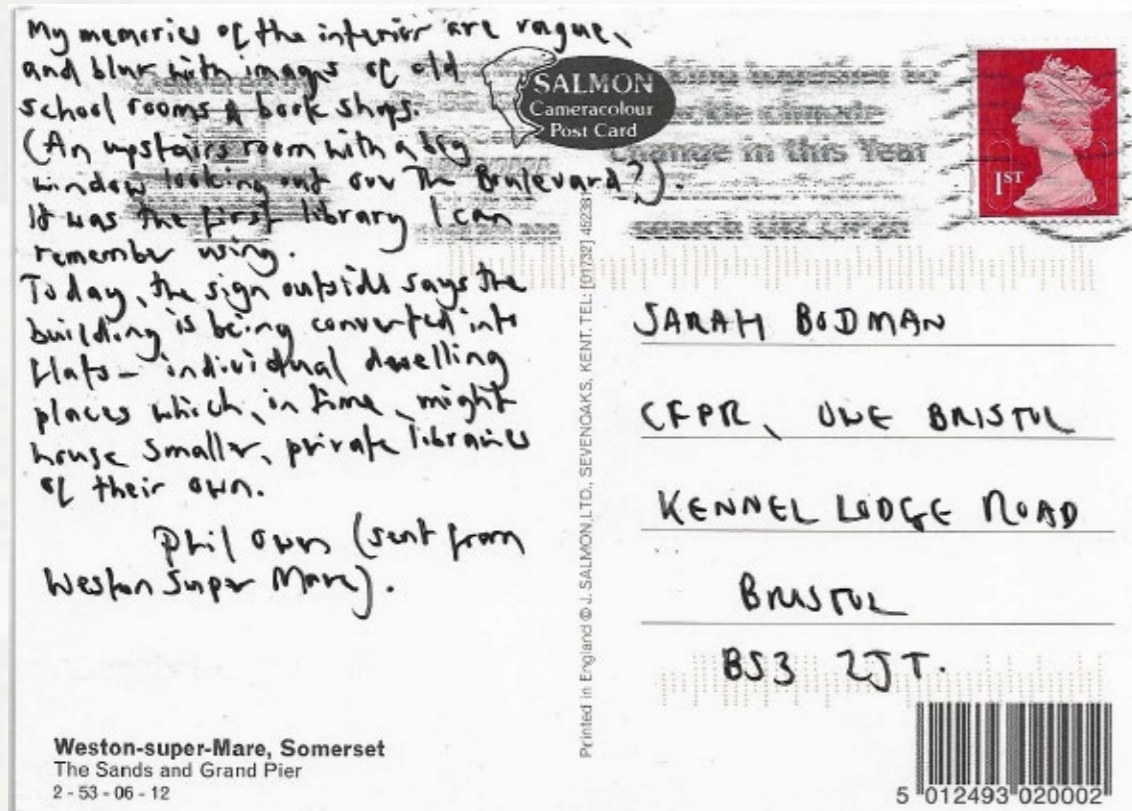 My memories of the interior are vague,
and blur with images of old
school rooms & book shops.
(An upstairs room with a big
window looking out over The Boulevard?).
It was the first library I can
remember using.
Today, the sign outside says the
building is being converted into
flats – individual dwelling
places which, in time, might
house smaller, private libraries
of their own.
Phil Owen (sent from
Weston Super Mare).
Weston-super-Mare, Somerset
The Sands and Grand Pier
2 - 53 - 06 - 12
SALMON
Cameracolour
Post Card
Printed in England © J. SALMON LTD., SEVENOAKS, KENT. TEL: [01732] 452381
together to
climate
Change in this Year
1ST
SARAH BODMAN
CFPR, UWE BRISTOL
KENNEL LODGE ROAD
BRISTOL
BS3 2JT.
5 012493 020002